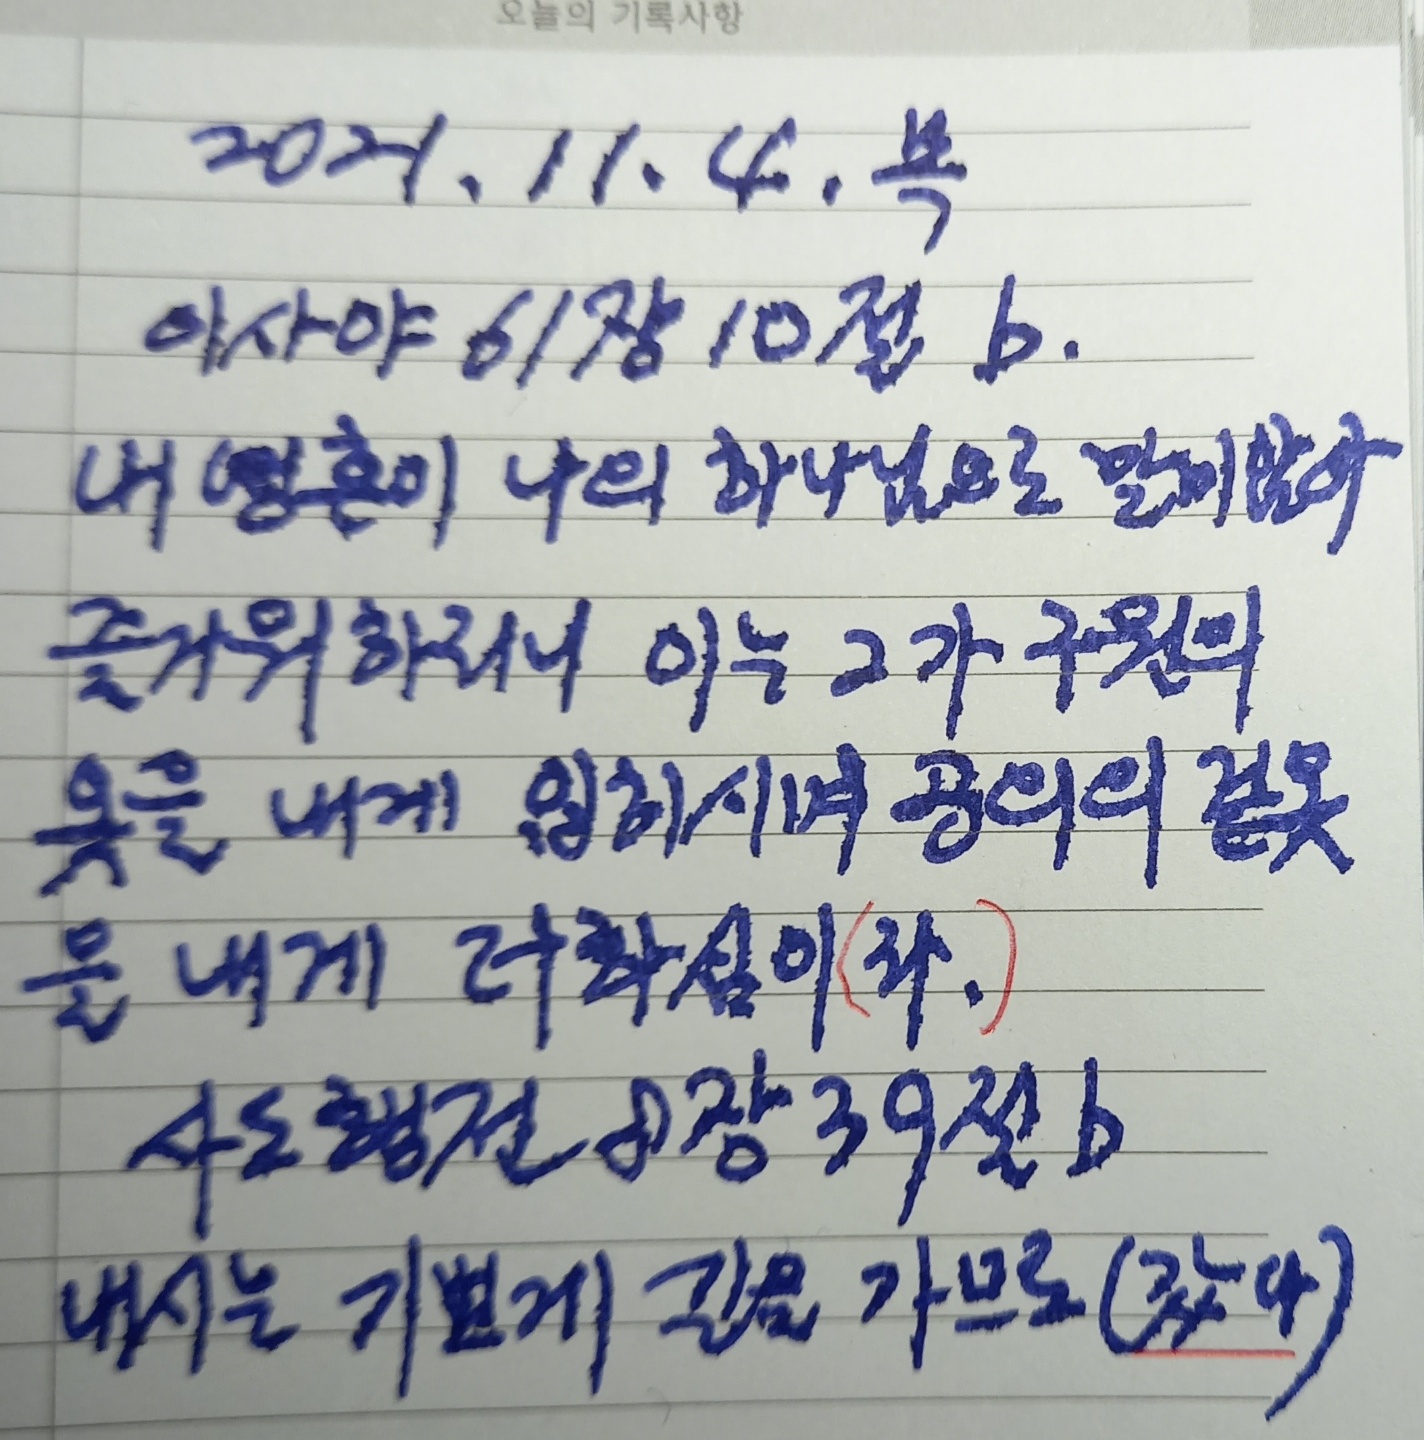 오늘의 기록사항
2021. 11. 4. 목
이사야 61장 10절 b.
내 영혼이 나의 하나님으로 말미암아
즐거워하리니 이는 그가 구원의
옷을 내게 입히시며 공의의 겉옷
을 내게 더하심이(라.)
사도행전 8장 39절 b
내시는 기쁘게 길을 가므로 (갔는다)